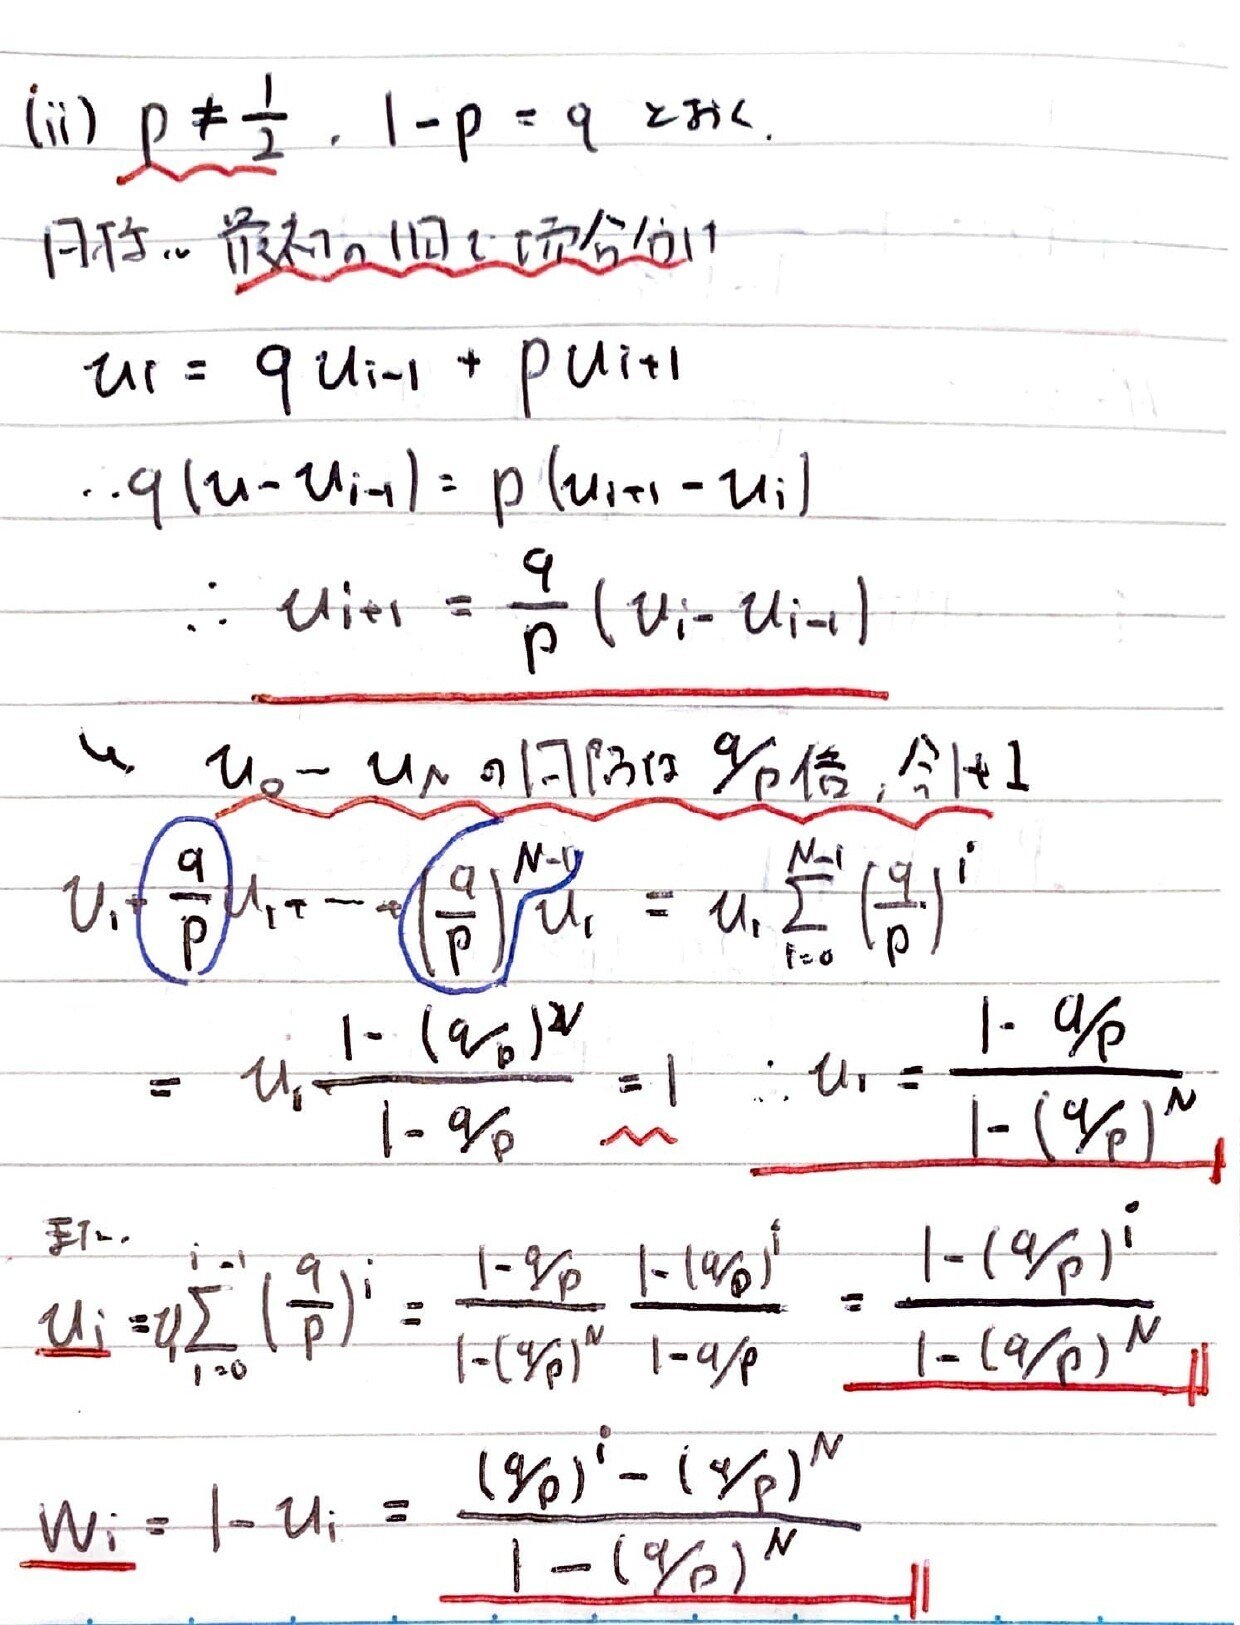 (ii) p ≠ 1/2 . 1-p = q とおく.
同様に 最初の1回で場合分け
ui = q ui-1 + p ui+1
∴ q(u - ui-1) = p(ui+1 - ui)
∴ ui+1 = q/p (ui - ui-1)
↳ u0 - uN の間隔は q/p倍, 合計1
u1 + q/p u1 + --- + (q/p)^N-1 u1 = u1 Σ_{i=0}^{N-1} (q/p)^i
= u1 (1-(q/p)^N)/(1-q/p) = 1 ∴ u1 = (1-q/p)/(1-(q/p)^N)
また.
ui = u1 Σ_{i=0}^{i-1} (q/p)^i = (1-q/p)/(1-(q/p)^N) (1-(q/p)^i)/(1-q/p) = (1-(q/p)^i)/(1-(q/p)^N)
wi = 1-ui = ((q/p)^i - (q/p)^N)/(1-(q/p)^N)